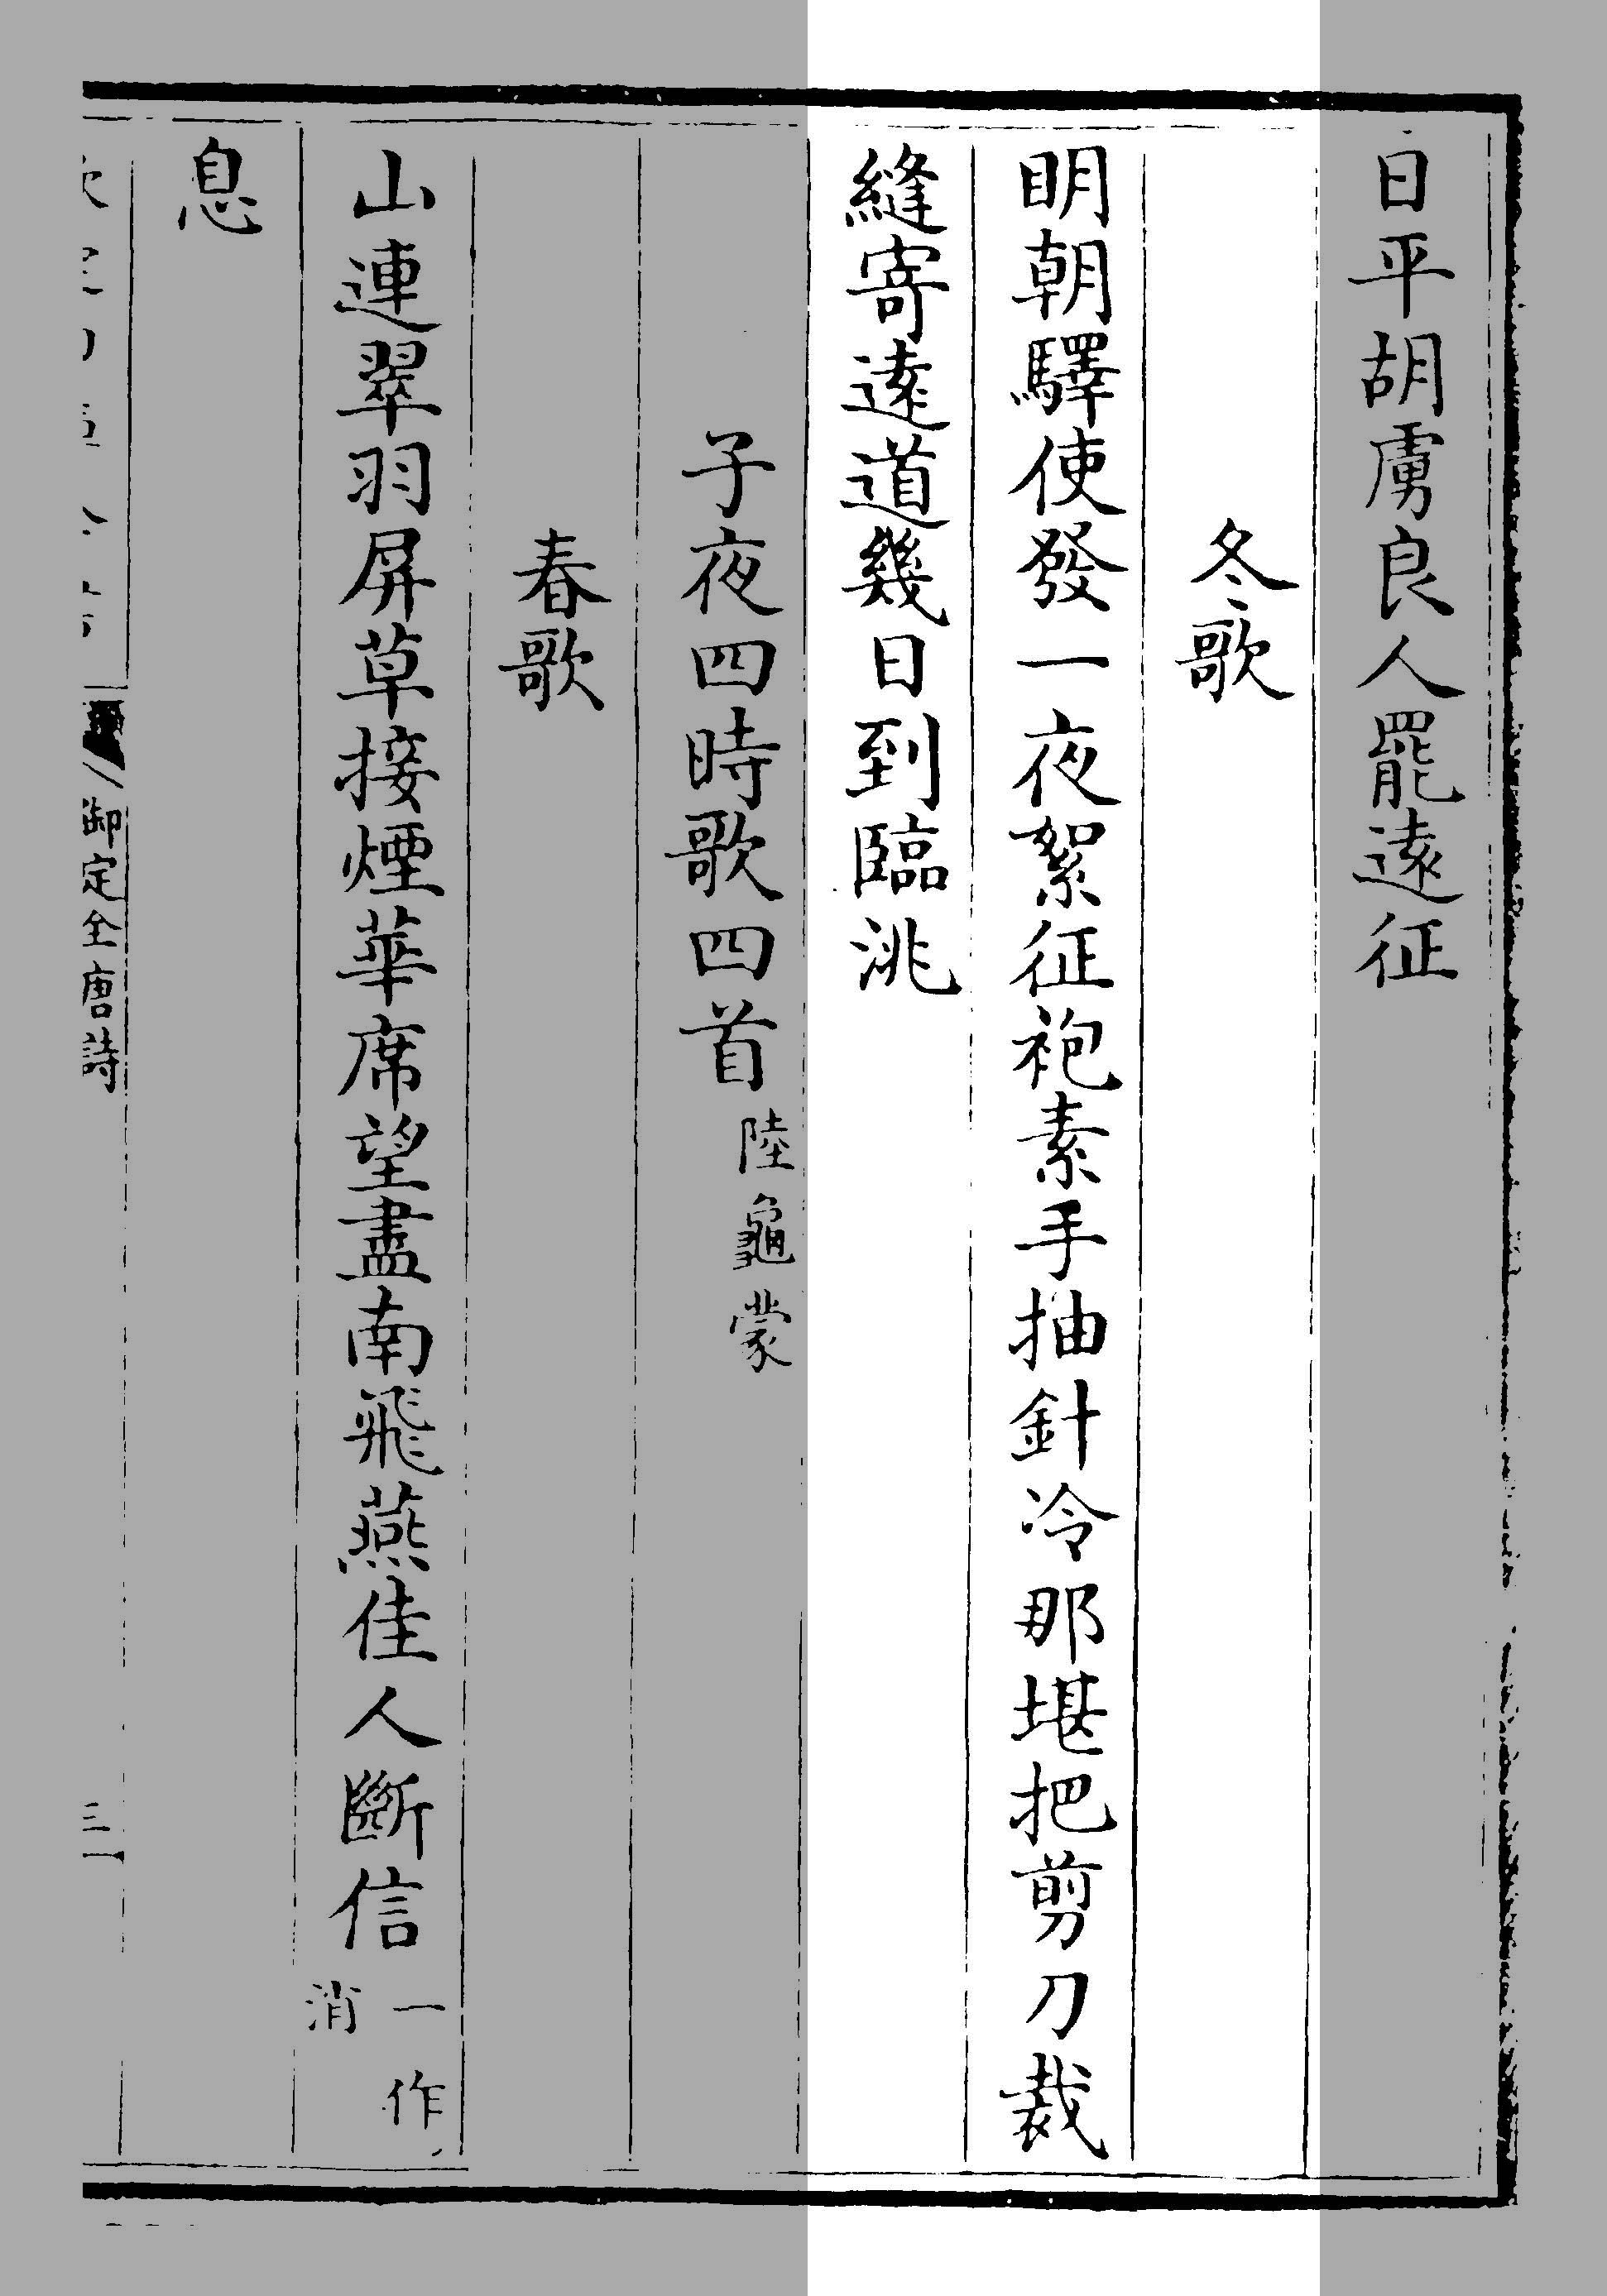 日平胡虜良人罷遠征
冬歌
明朝驛使發一夜絮征袍素手抽針冷那堪把剪刀裁
縫寄遠道幾日到臨洮
子夜四時歌四首陸龜蒙
春歌
山連翠羽屏草接煙華席望盡南飛燕佳人斷信一作消
息
御定全唐詩